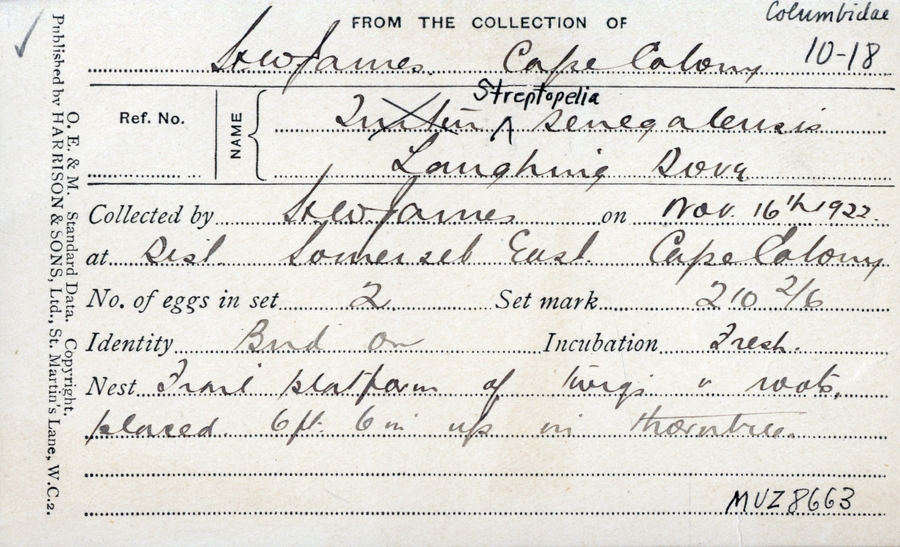 FROM THE COLLECTION OF
Columbidae
H.W. James. Cape Colony 10-18
Ref. No.
NAME
Streptopelia
Turtur senegalensis
Laughing Dove
Collected by H.W. James on Nov. 16th 1922.
at Dist. Somerset East. Cape Colony
No. of eggs in set 2 Set mark 210 2/6
Identity Bird on Incubation Fresh.
Nest Frail platform of twigs & roots,
placed 6ft. 6in up in thorntree.
MUZ 8663
O. E. & M. Standard Data. Copyright.
Published by HARRISON & SONS, Ltd., St. Martin's Lane, W.C.2.